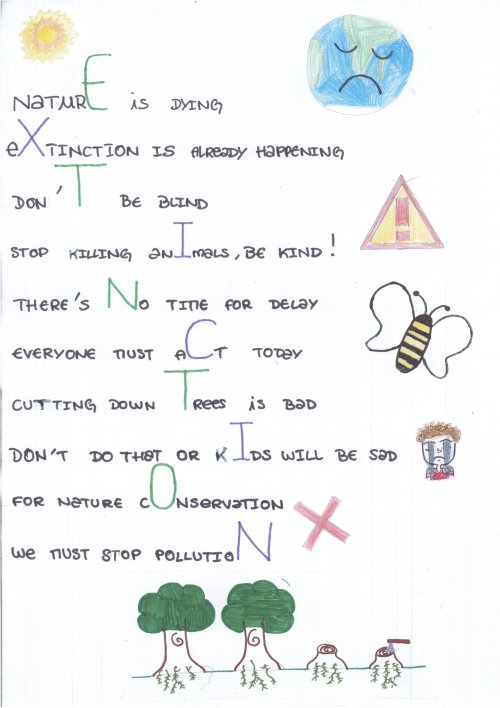 NATURE IS DYING
EXTINCTION IS ALREADY HAPPENING
DON'T BE BLIND
STOP KILLING ANIMALS, BE KIND!
THERE'S NO TIME FOR DELAY
EVERYONE MUST ACT TODAY
CUTTING DOWN TREES IS BAD
DON'T DO THAT OR KIDS WILL BE SAD
FOR NATURE CONSERVATION
WE MUST STOP POLLUTION